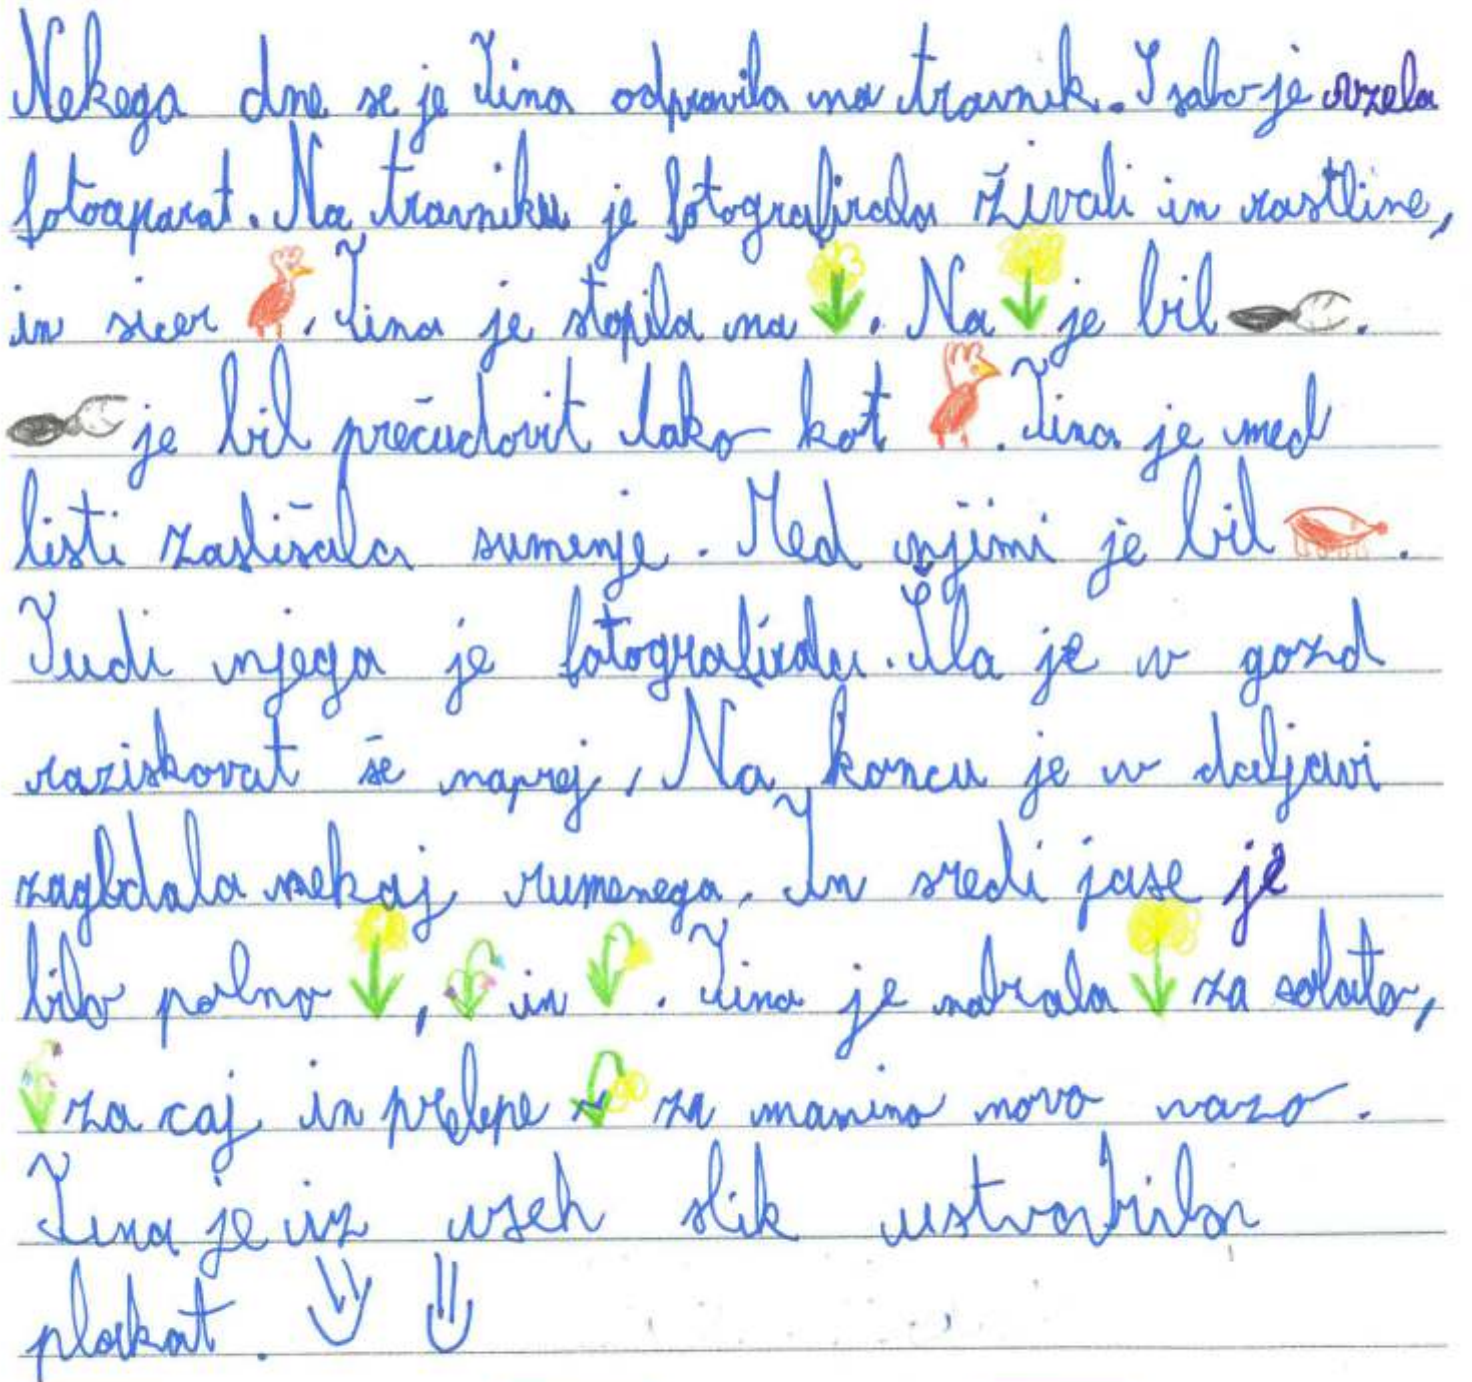 Nekega dne se je Tina odpravila na travnik. S sabo je vzela
fotoaparat. Na travniku je fotografirala živali in rastline,
in sicer . Tina je stopila na . Na je bil .
je bil prečudovit tako kot . Tina je med
listi zaslišala šumenje. Med njimi je bil .
Tudi njega je fotografirala. Šla je v gozd
raziskovat še naprej, Na koncu je v daljavi
zagledala nekaj rumenega. In sredi jase je
bilo polno , in . Tina je nabrala za solato,
za caj in prelepe za mamino novo vazo.
Tina je iz vseh slik ustvarila
plakat.